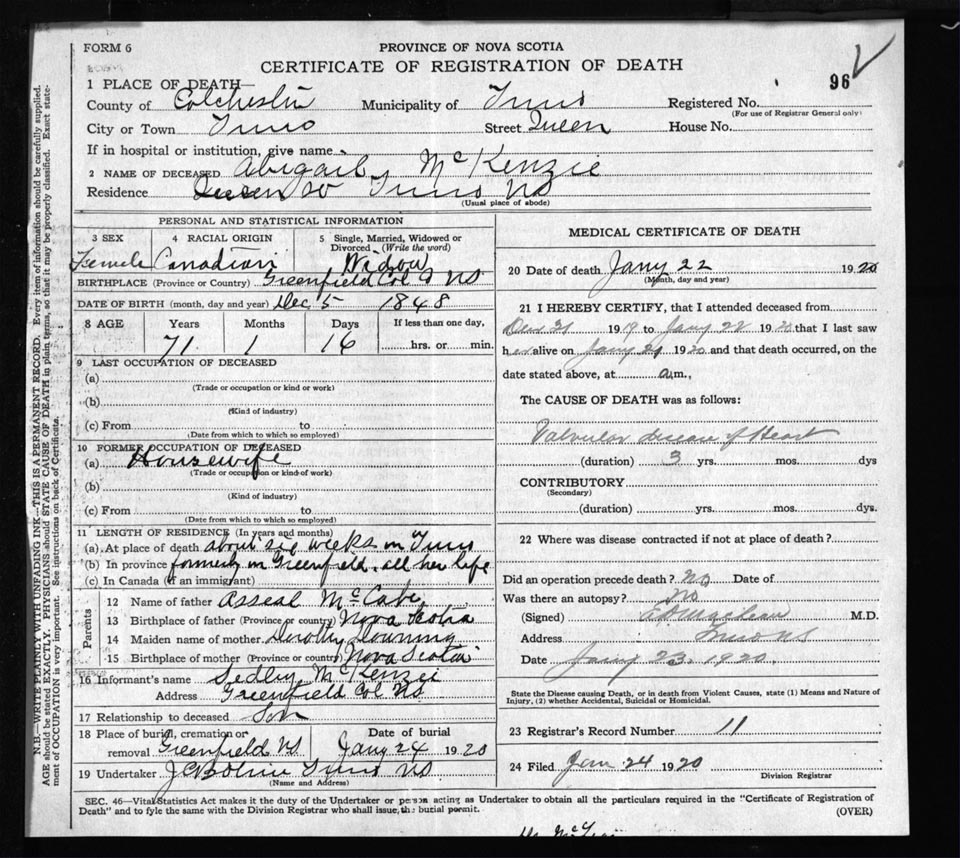 FORM 6
PROVINCE OF NOVA SCOTIA
CERTIFICATE OF REGISTRATION OF DEATH
96
1 PLACE OF DEATH—
County of Colchester Municipality of Truro Registered No.
(For use of Registrar General only)
City or Town Truro Street Queen House No.
If in hospital or institution, give name
2 NAME OF DECEASED Abigail McKenzie
Residence Queen St Truro NS
(Usual place of abode)
PERSONAL AND STATISTICAL INFORMATION
3 SEX 4 RACIAL ORIGIN 5 Single, Married, Widowed or Divorced (Write the word)
Female Canadian Widow
BIRTHPLACE (Province or Country) Greenfield Col Co NS
DATE OF BIRTH (month, day and year) Dec 5 1848
8 AGE Years Months Days If less than one day,
71 1 16 hrs. or min.
9 LAST OCCUPATION OF DECEASED
(a)
(Trade or occupation or kind or work)
(b)
(Kind of industry)
(c) From to
(Date from which to which so employed)
10 FORMER OCCUPATION OF DECEASED
(a) Housewife
(Trade or occupation or kind of work)
(b)
(Kind of industry)
(c) From to
(Date from which to which so employed)
11 LENGTH OF RESIDENCE (In years and months)
(a) At place of death about six weeks in Truro
(b) In province formerly in Greenfield, all her life
(c) In Canada (if an immigrant)
Parents
12 Name of father Asseal McCabe
13 Birthplace of father (Province or country) Nova Scotia
14 Maiden name of mother Dorothy Downing
15 Birthplace of mother (Province or country) Nova Scotia
16 Informant's name Sedley McKenzie
Address Greenfield Col NS
17 Relationship to deceased Son
18 Place of burial, cremation or removal Greenfield NS Date of burial Jany 24 1920
19 Undertaker Truro NS
(Name and Address)
MEDICAL CERTIFICATE OF DEATH
20 Date of death Jany 22 1920
(Month, day and year)
21 I HEREBY CERTIFY, that I attended deceased from
Dec 21 1919 to Jany 22 1920 that I last saw
her alive on Jany 21 1920 and that death occurred, on the
date stated above, at a.m.,
The CAUSE OF DEATH was as follows:
Valvular disease of Heart
(duration) 3 yrs. mos. dys
CONTRIBUTORY
(Secondary)
(duration) yrs. mos. dys.
22 Where was disease contracted if not at place of death?
Did an operation precede death? No Date of
Was there an autopsy? No
(Signed) M.D.
Address Truro NS
Date Jany 23, 1920.
State the Disease causing Death, or in death from Violent Causes, state (1) Means and Nature of
Injury, (2) whether Accidental, Suicidal or Homicidal.
23 Registrar's Record Number 11
24 Filed Jan 24 1920
Division Registrar
SEC. 46—Vital Statistics Act makes it the duty of the Undertaker or person acting as Undertaker to obtain all the particulars required in the "Certificate of Registration of
Death" and to fyle the same with the Division Registrar who shall issue the burial permit. (OVER)
N.B.—WRITE PLAINLY WITH UNFADING INK—THIS IS A PERMANENT RECORD. Every item of information should be carefully supplied.
AGE should be stated EXACTLY. PHYSICIANS should STATE CAUSE OF DEATH in plain terms, so that it may be properly classified. Exact state-
ment of OCCUPATION is very important. See instructions on back of Certificate.